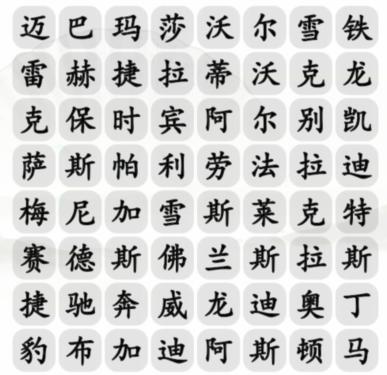 迈巴玛莎沃尔雪铁
雷赫捷拉蒂沃克龙
克保时宾阿尔别凯
萨斯帕利劳法拉迪
梅尼加雪斯莱克特
赛德斯佛兰斯拉斯
捷驰奔威龙迪奥丁
豹布加迪阿斯顿马